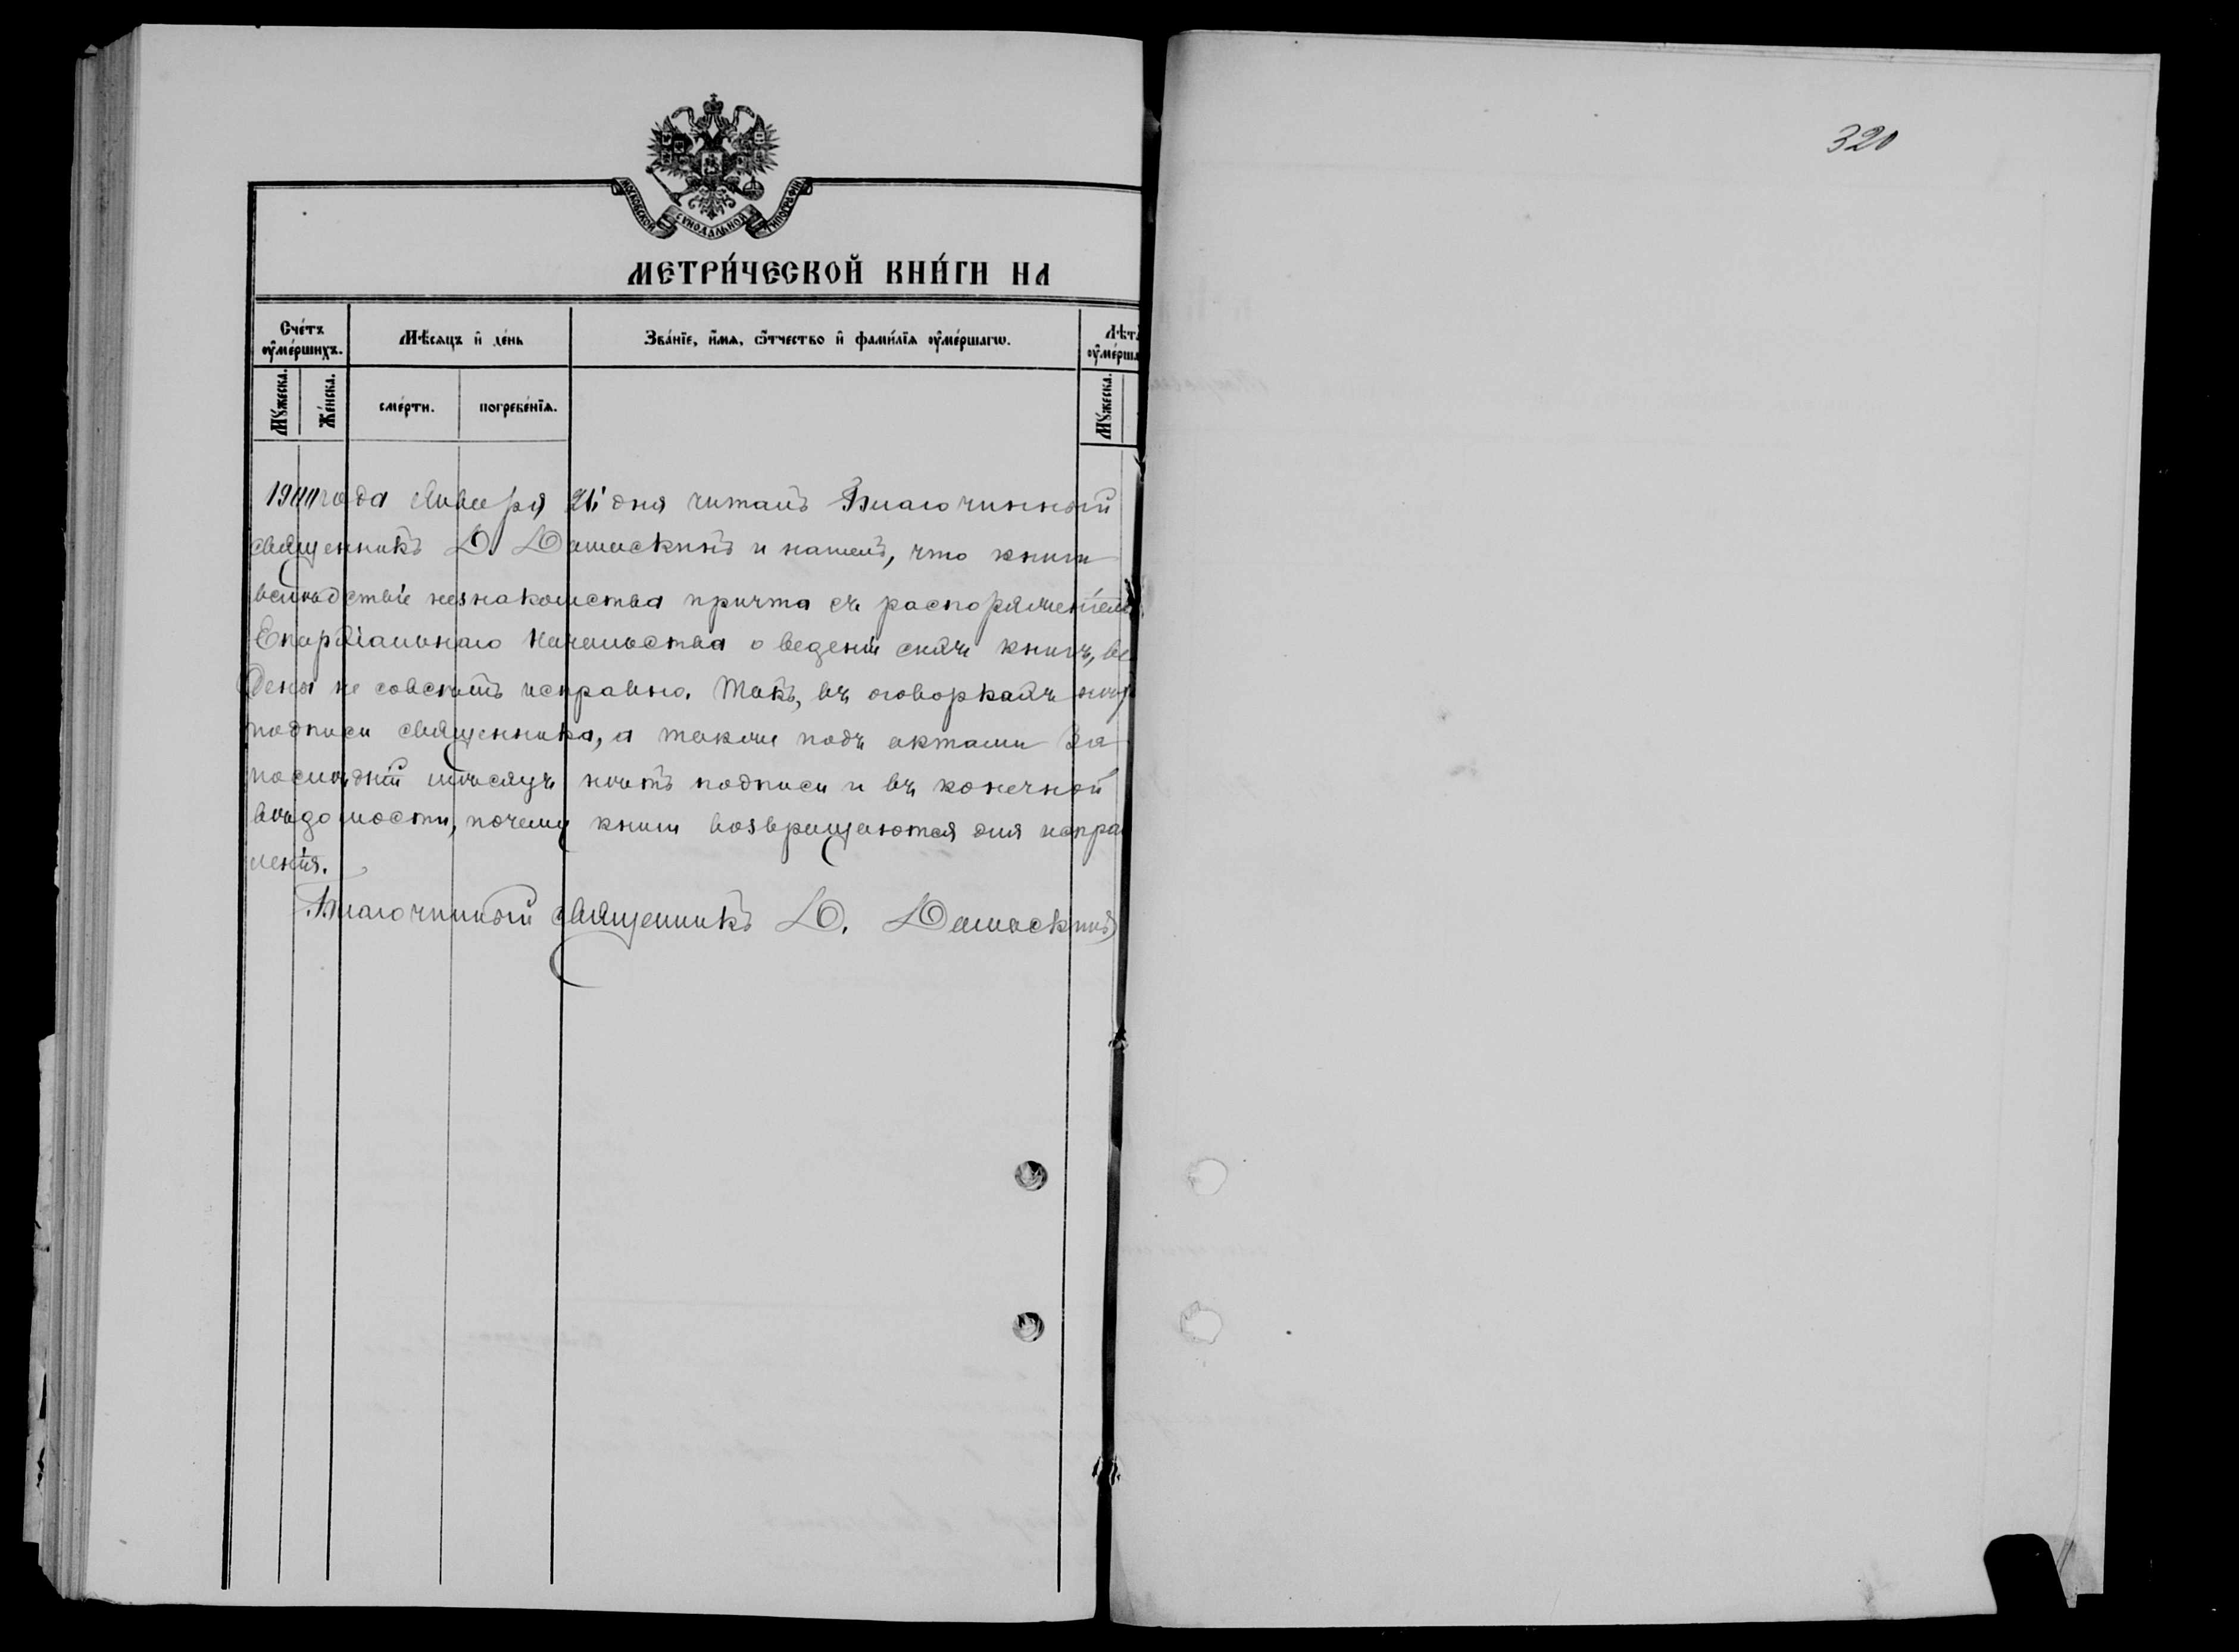 320
МОСКОВСКОЙ СѴНОДАЛЬНОЙ ТИПОГРАФІИ
МЕТРИ́ЧЕСКОЙ КНИ́ГИ НА
Сче́тъ ᲂу҆ме́ршихъ.
Мѣ́сяцъ и҆ де́нь
Зва́нїе, и҆́мѧ, ѻ҆́тчество и҆ фами́лїѧ ᲂу҆ме́ршагѡ.
Лѣт
ᲂу҆ме́рша
Мꙋ́жеска.
Же́нска.
сме́рти.
погребе́нїѧ.
Мꙋ́жеска.
года Января 21 дня читалъ Благочинный
священникъ Д. Дамаскинъ и нашелъ, что книги
вслѣдствіе незнакомства причта съ распоряженіемъ
Епархіальнаго Начальства о веденіи сихъ книгъ, ве
дены не совсѣмъ исправно. Такъ, въ оговоркахъ нѣт
подписи священника, а также подъ актами за
послѣдній мѣсяцъ нѣтъ подписи и въ конечной
вѣдомости, почему книги возвращаются для испра
ленія.
Благочинный священникъ Д. Дамаскинъ